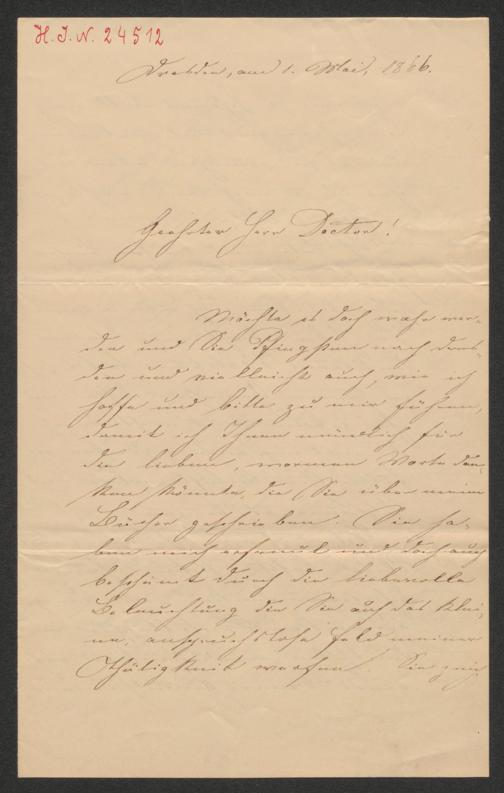 H. I. N. 24512
Dresden, am 1. Mai, 1866.
Geehrter Herr Doctor!
Möchte es doch wahr wer-
den und Sie Pfingsten nach Dres-
den und vielleicht auch, wie ich
hoffe und bitte zu mir führen,
damit ich Ihnen mündlich für
die lieben, warmen Worte dan-
ken könnte, die Sie über meine
Bücher geschrieben. Sie ha-
ben mich erfreut und doch auch
beschämt durch die liebevolle
Beleuchtung die Sie auf das klei-
ne, anspruchslose Feld meiner
Thätigkeit warfen. Sie